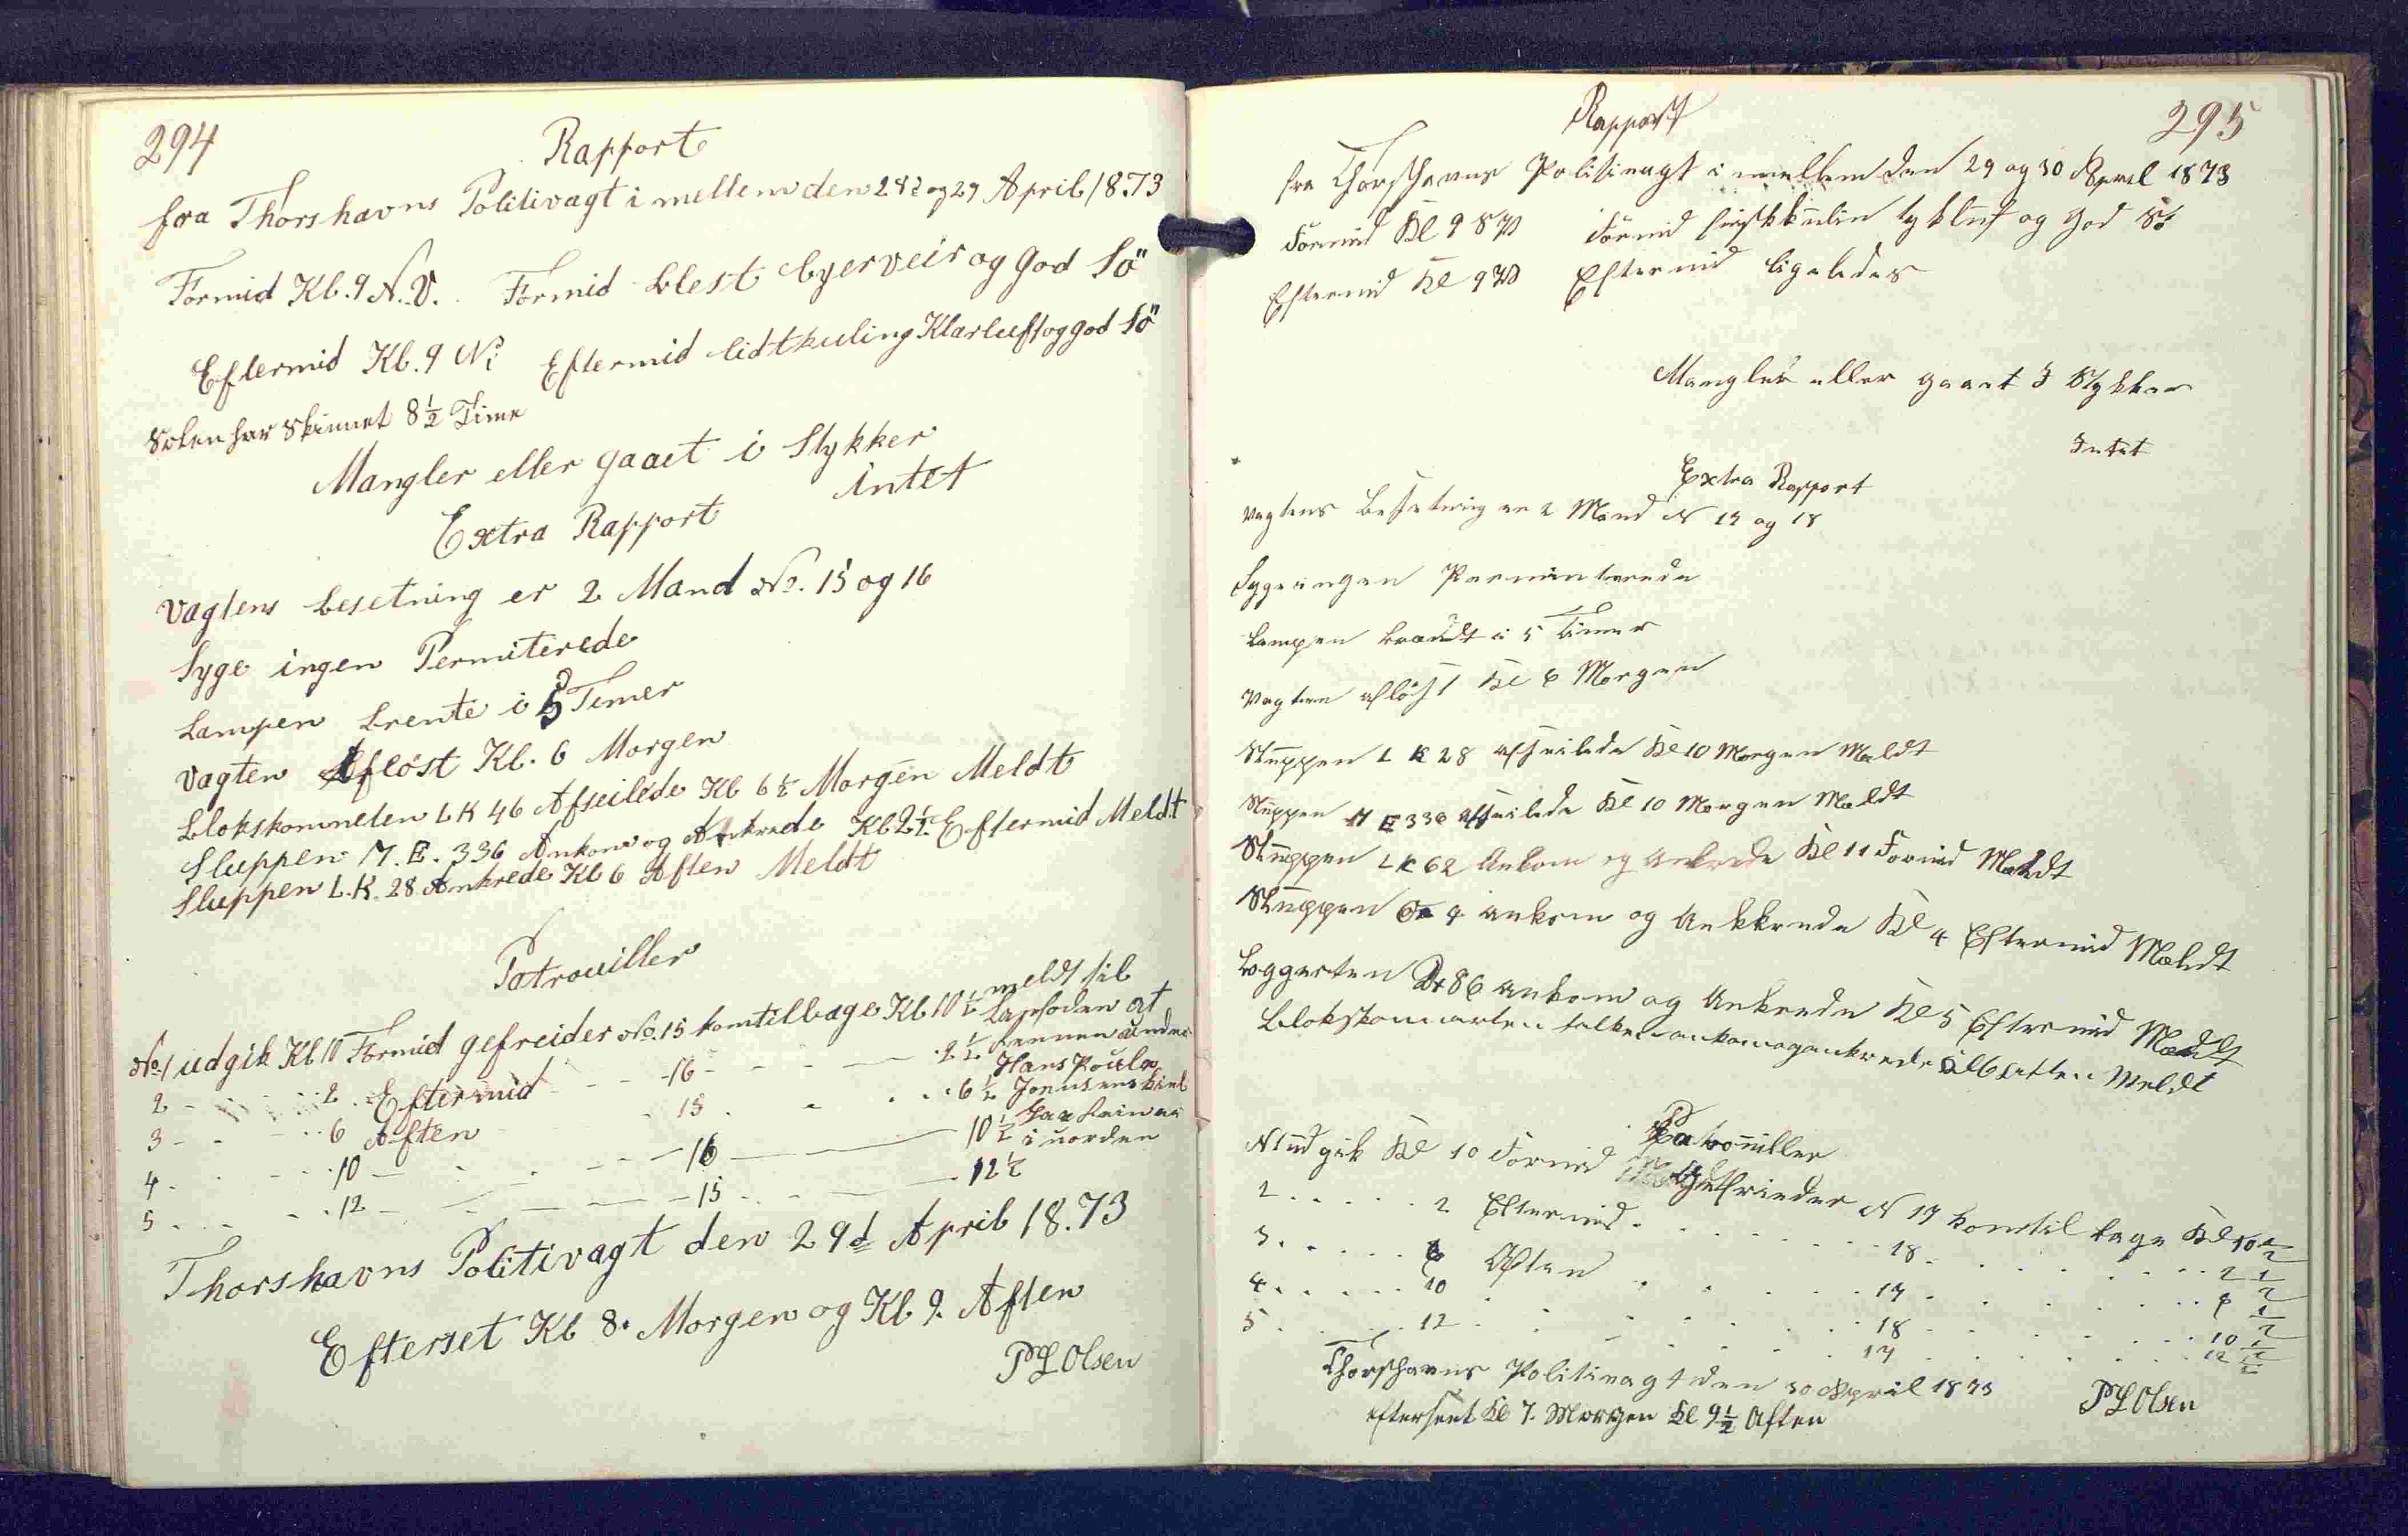 294
Rapport
fra Thorshavns Politivagt i mellem den 28d og 29 April 1873
Formid Kl. 9 N.V. Formid blest byerveir og God Sö
Eftermid Kl. 9 N. Eftermid lidt kuling Klarluft og god Sö
Solen har Skinnet 8½ Time
Mangler eller gaaet i Stykker
intet
Extra Rapport
Vagtens besetning er 2 Mand No. 15 og 16
Syge ingen Permiterede
Lampen brente i 5 Timer
Vagten Afløst Kl. 6 Morgen
Blokskonneten LK 46 Afseilede Kl 6½ Morgen Meldt
Sluppen M.E. 336 Ankom og Ankrede Kl 2½ Eftermid Meldt
Sluppen L.K. 28 Ankrede Kl 6 Aften Meldt
Patrouiller
No. 1 udgik Kl 10 Formid gefreider No. 15 kom tilbage Kl 10½ meldt til
2 - - - 2 Eftermid - - 16 - - - 2½ Lapfoden at
3 - - - 6 Aften - 15 - - - 6½ Rennen under
4 - - - 10 - - - 16 - - 10½ Hans Poula
5 - - - 12 - - - 15 - - - 12½ Joensens
i norden
Thorshavns Politivagt den 29d April 18.73
Efterset Kl 8. Morgen og Kl 9. Aften
PL Olsen
295
Rapport
fra Thorshavns Politivagt i mellem den 29 og 30 April 1873
Formid Kl 9 SV Formid friskkulin tykluft og God Sö
Eftermid Kl 9 V Eftermid ligeledes
Mangler eller gaaet I Stykker
Intet
Extra Rapport
Vagtens Besetning er 2 Mand N 17 og 18
Syge ingen Permiterede
Lampen brændt i 5 Timer
Vagten afløst Kl 6 Morgen
Sluppen L K 28 afseilede Kl 10 Morgen Meldt
Sluppen M E 336 afseilede Kl 10 Morgen Meldt
Sluppen L K 62 Ankom og Ankrede Kl 11 Formid Meldt
Sluppen 4 ankom og Ankkrede Kl 4 Eftermid Meldt
Loggerten 86 ankom og Ankrede Kl 5 Eftermid Meldt
Blokskonnerten falken ankom og ankrede Kl 6 aften Meldt
Patrouiller
N 1 udgik Kl 10 Formid Gefrieder N 17 kom til bage Kl 10½
2 . . . . . 2 Eftermid . . . . . 18 . . . . . 2½
3 . . . . . 6 Aften . . . . . 17 . . . . . 6½
4 . . . . . 10 . . . . . 18 . . . . . 10½
5 . . . . . 12 . . . . . 17 . . . . . 12½
Thorshavns Politivagt den 30 April 1873
efterseet Kl 7. Morgen Kl 9½ Aften
PL Olsen